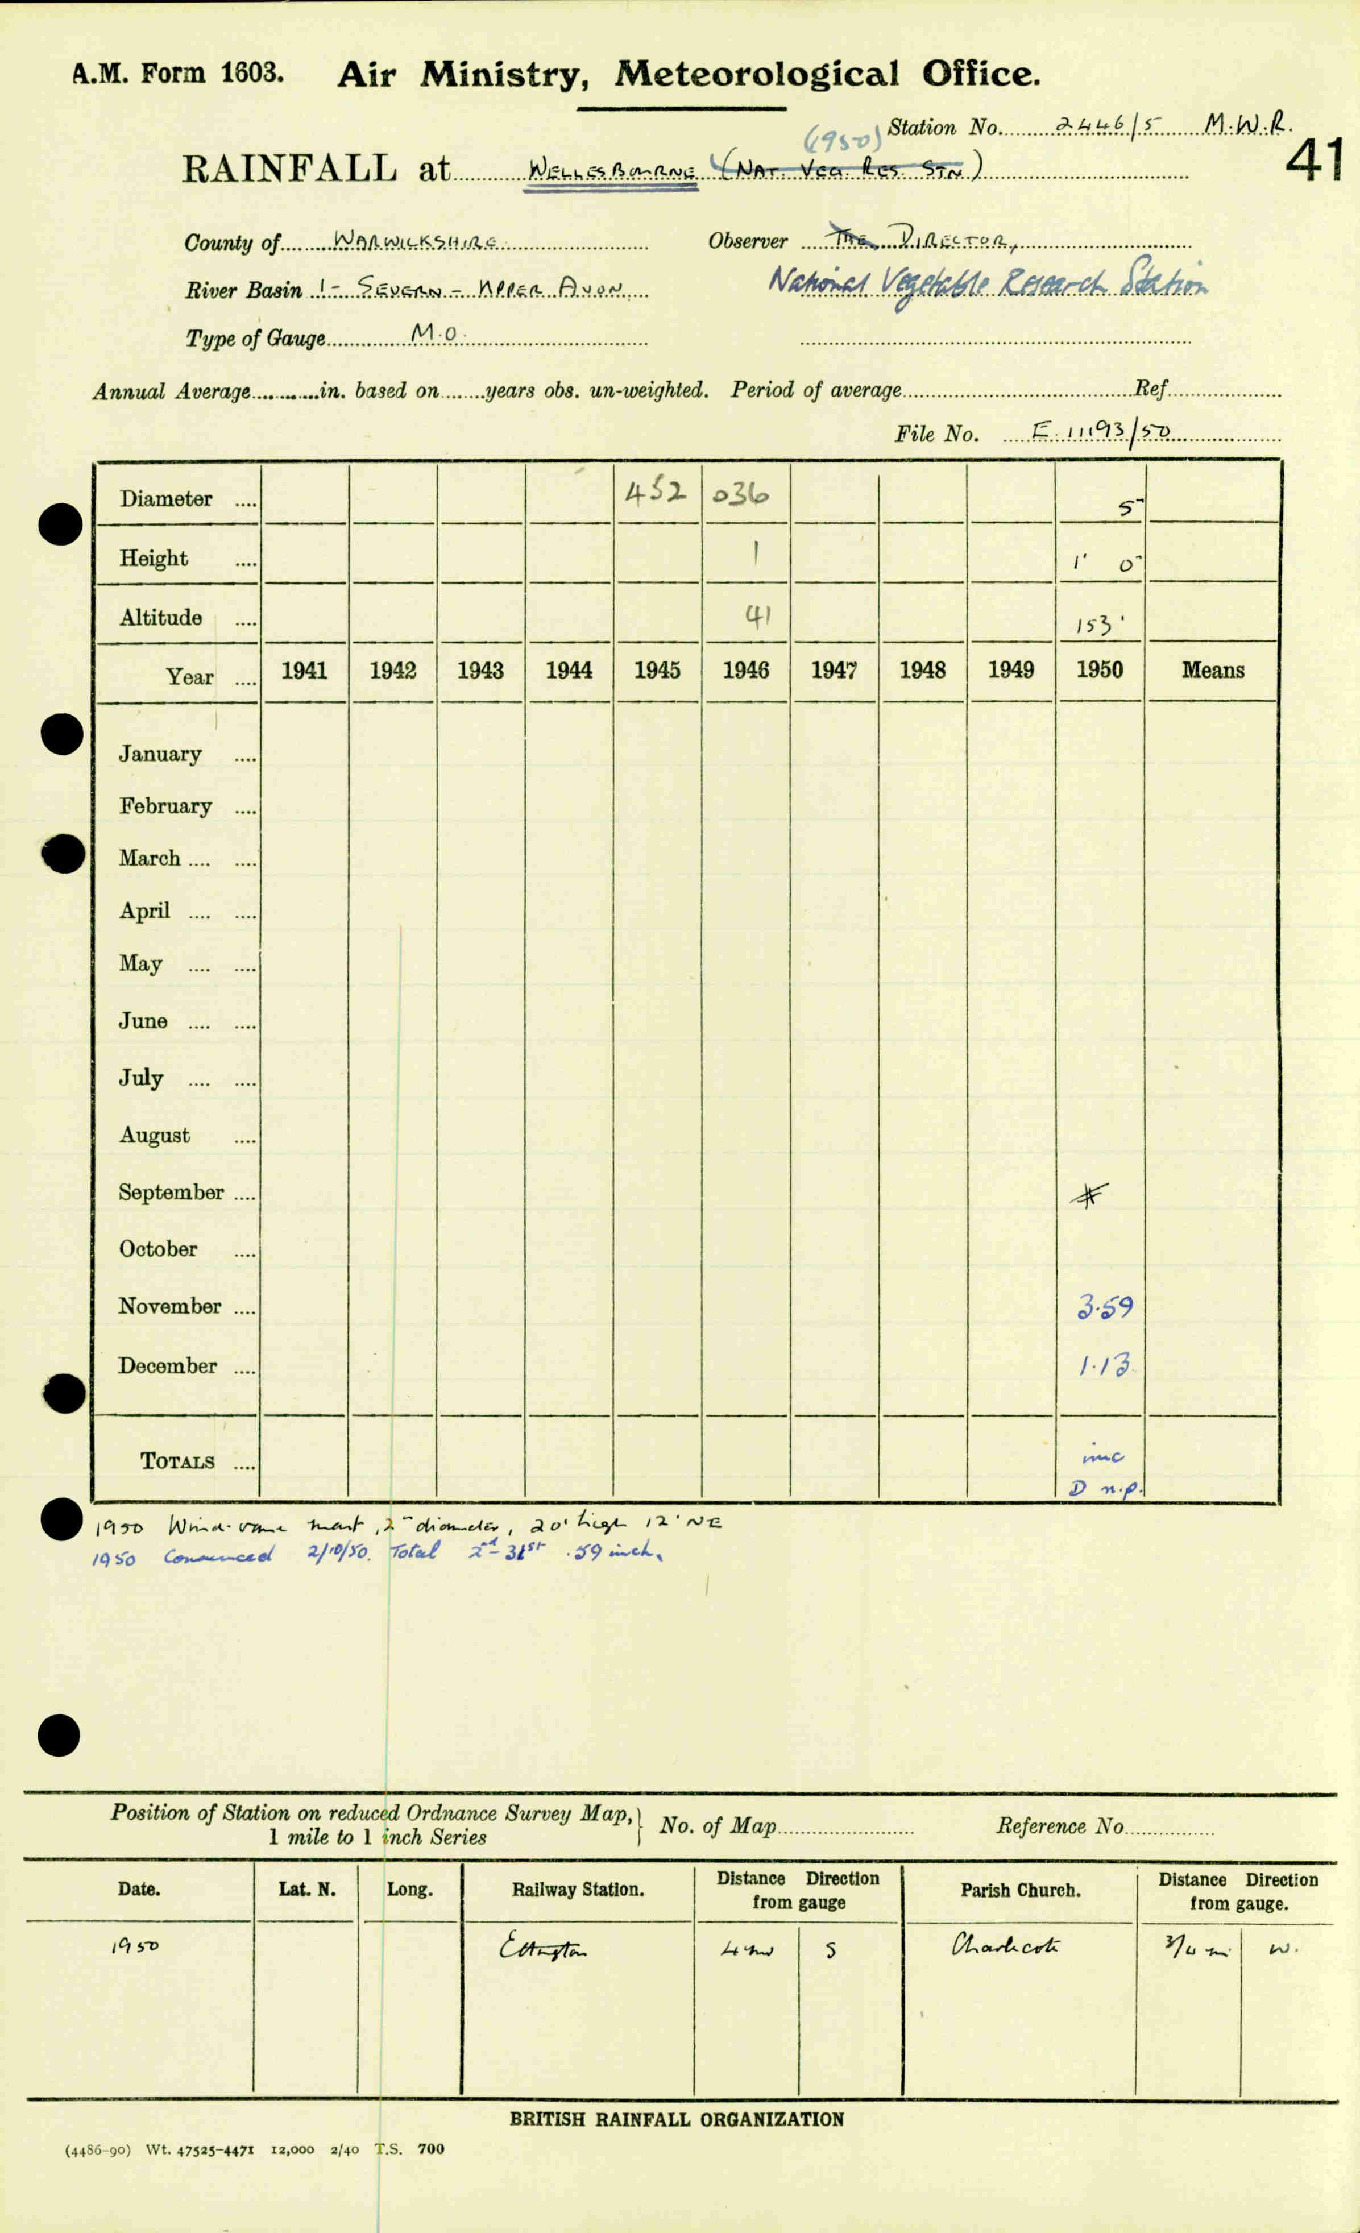 A.M. Form 1603. Air Ministry, Meteorological Office.
(1950) Station No. 2446/5 M.W.R.
41
RAINFALL at WELLESBOURNE (NAT. VEG. RES. STN)
County of WARWICKSHIRE Observer THE DIRECTOR,
River Basin 1- SEVERN - UPPER AVON National Vegetable Research Station
Type of Gauge M.O.
Annual Average in. based on years obs. un-weighted. Period of average Ref.
File No. E 11193/50
Diameter .... 452 036 5"
Height .... 1 1' 0"
Altitude .... 41 153'
Year .... 1941 1942 1943 1944 1945 1946 1947 1948 1949 1950 Means
January ....
February ....
March .... ....
April .... ....
May .... ....
June .... ....
July .... ....
August ....
September .... *
October ....
November .... 3.59
December .... 1.13
TOTALS .... inc
D n.p.
1950 Wind-vane mast, 2" diameter, 20' high 12' NE
1950 Commenced 2/10/50. Total 2nd-31st .59 inch.
Position of Station on reduced Ordnance Survey Map, } No. of Map Reference No
1 mile to 1 inch Series
Date. Lat. N. Long. Railway Station. Distance Direction from gauge Parish Church. Distance Direction from gauge.
1950 Ettington 4 mi S Charlecote 3/4 mi W.
BRITISH RAINFALL ORGANIZATION
(4486-90) Wt. 47525-4471 12,000 2/40 T.S. 700